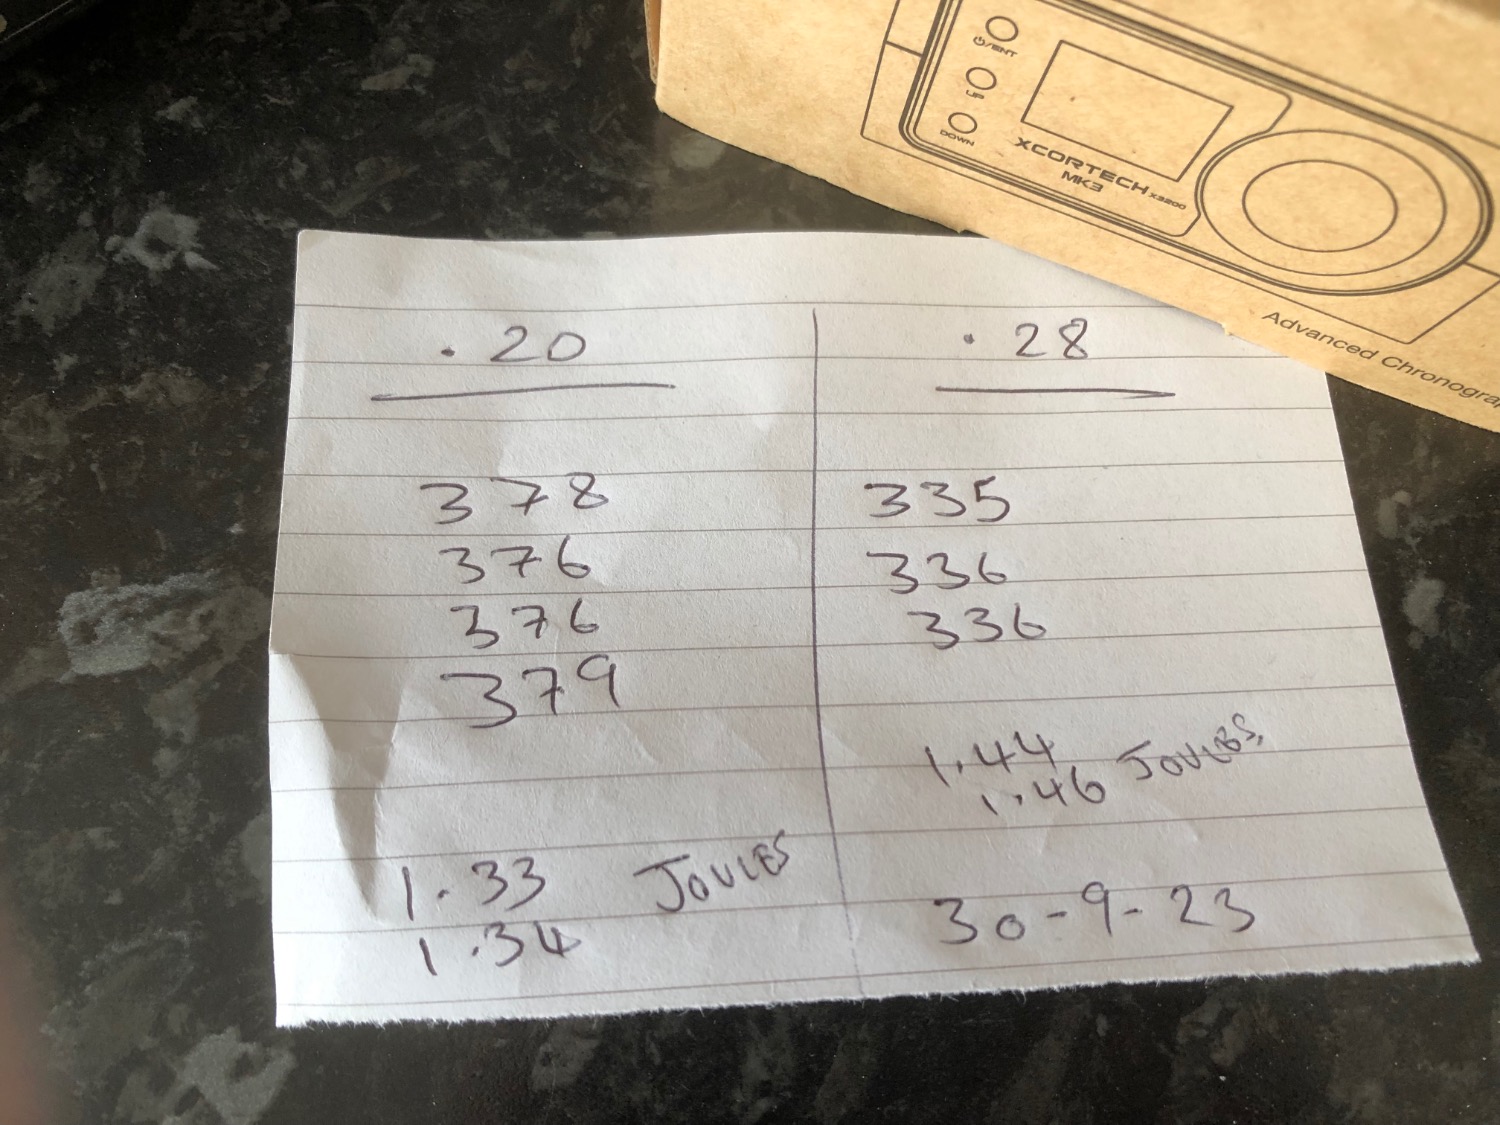 ⏻/ENT
UP
DOWN
XCORTECH
MK3 X3200
Advanced Chronogra
.20
378
376
376
379
1.33 JOULES
1.34
.28
335
336
336
1.44
1.46 JOULES.
30-9-23